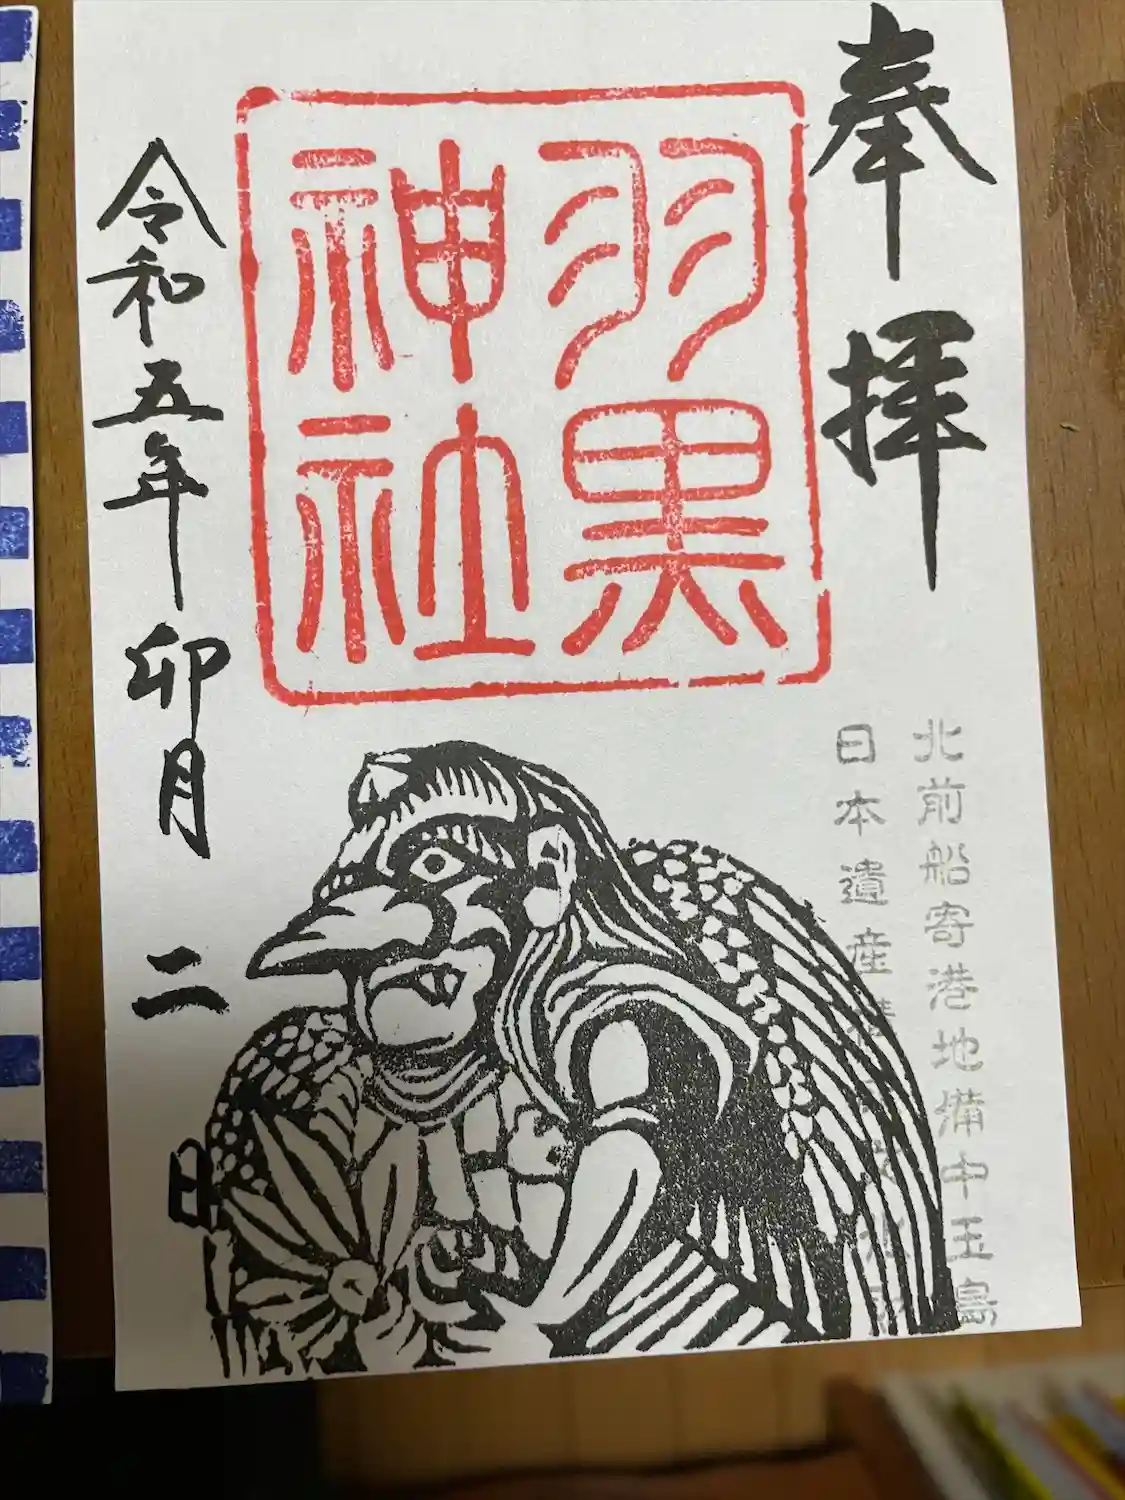 奉拝
北前船寄港地備中玉島
日本遺産
羽黒
神社
令和五年卯月二日